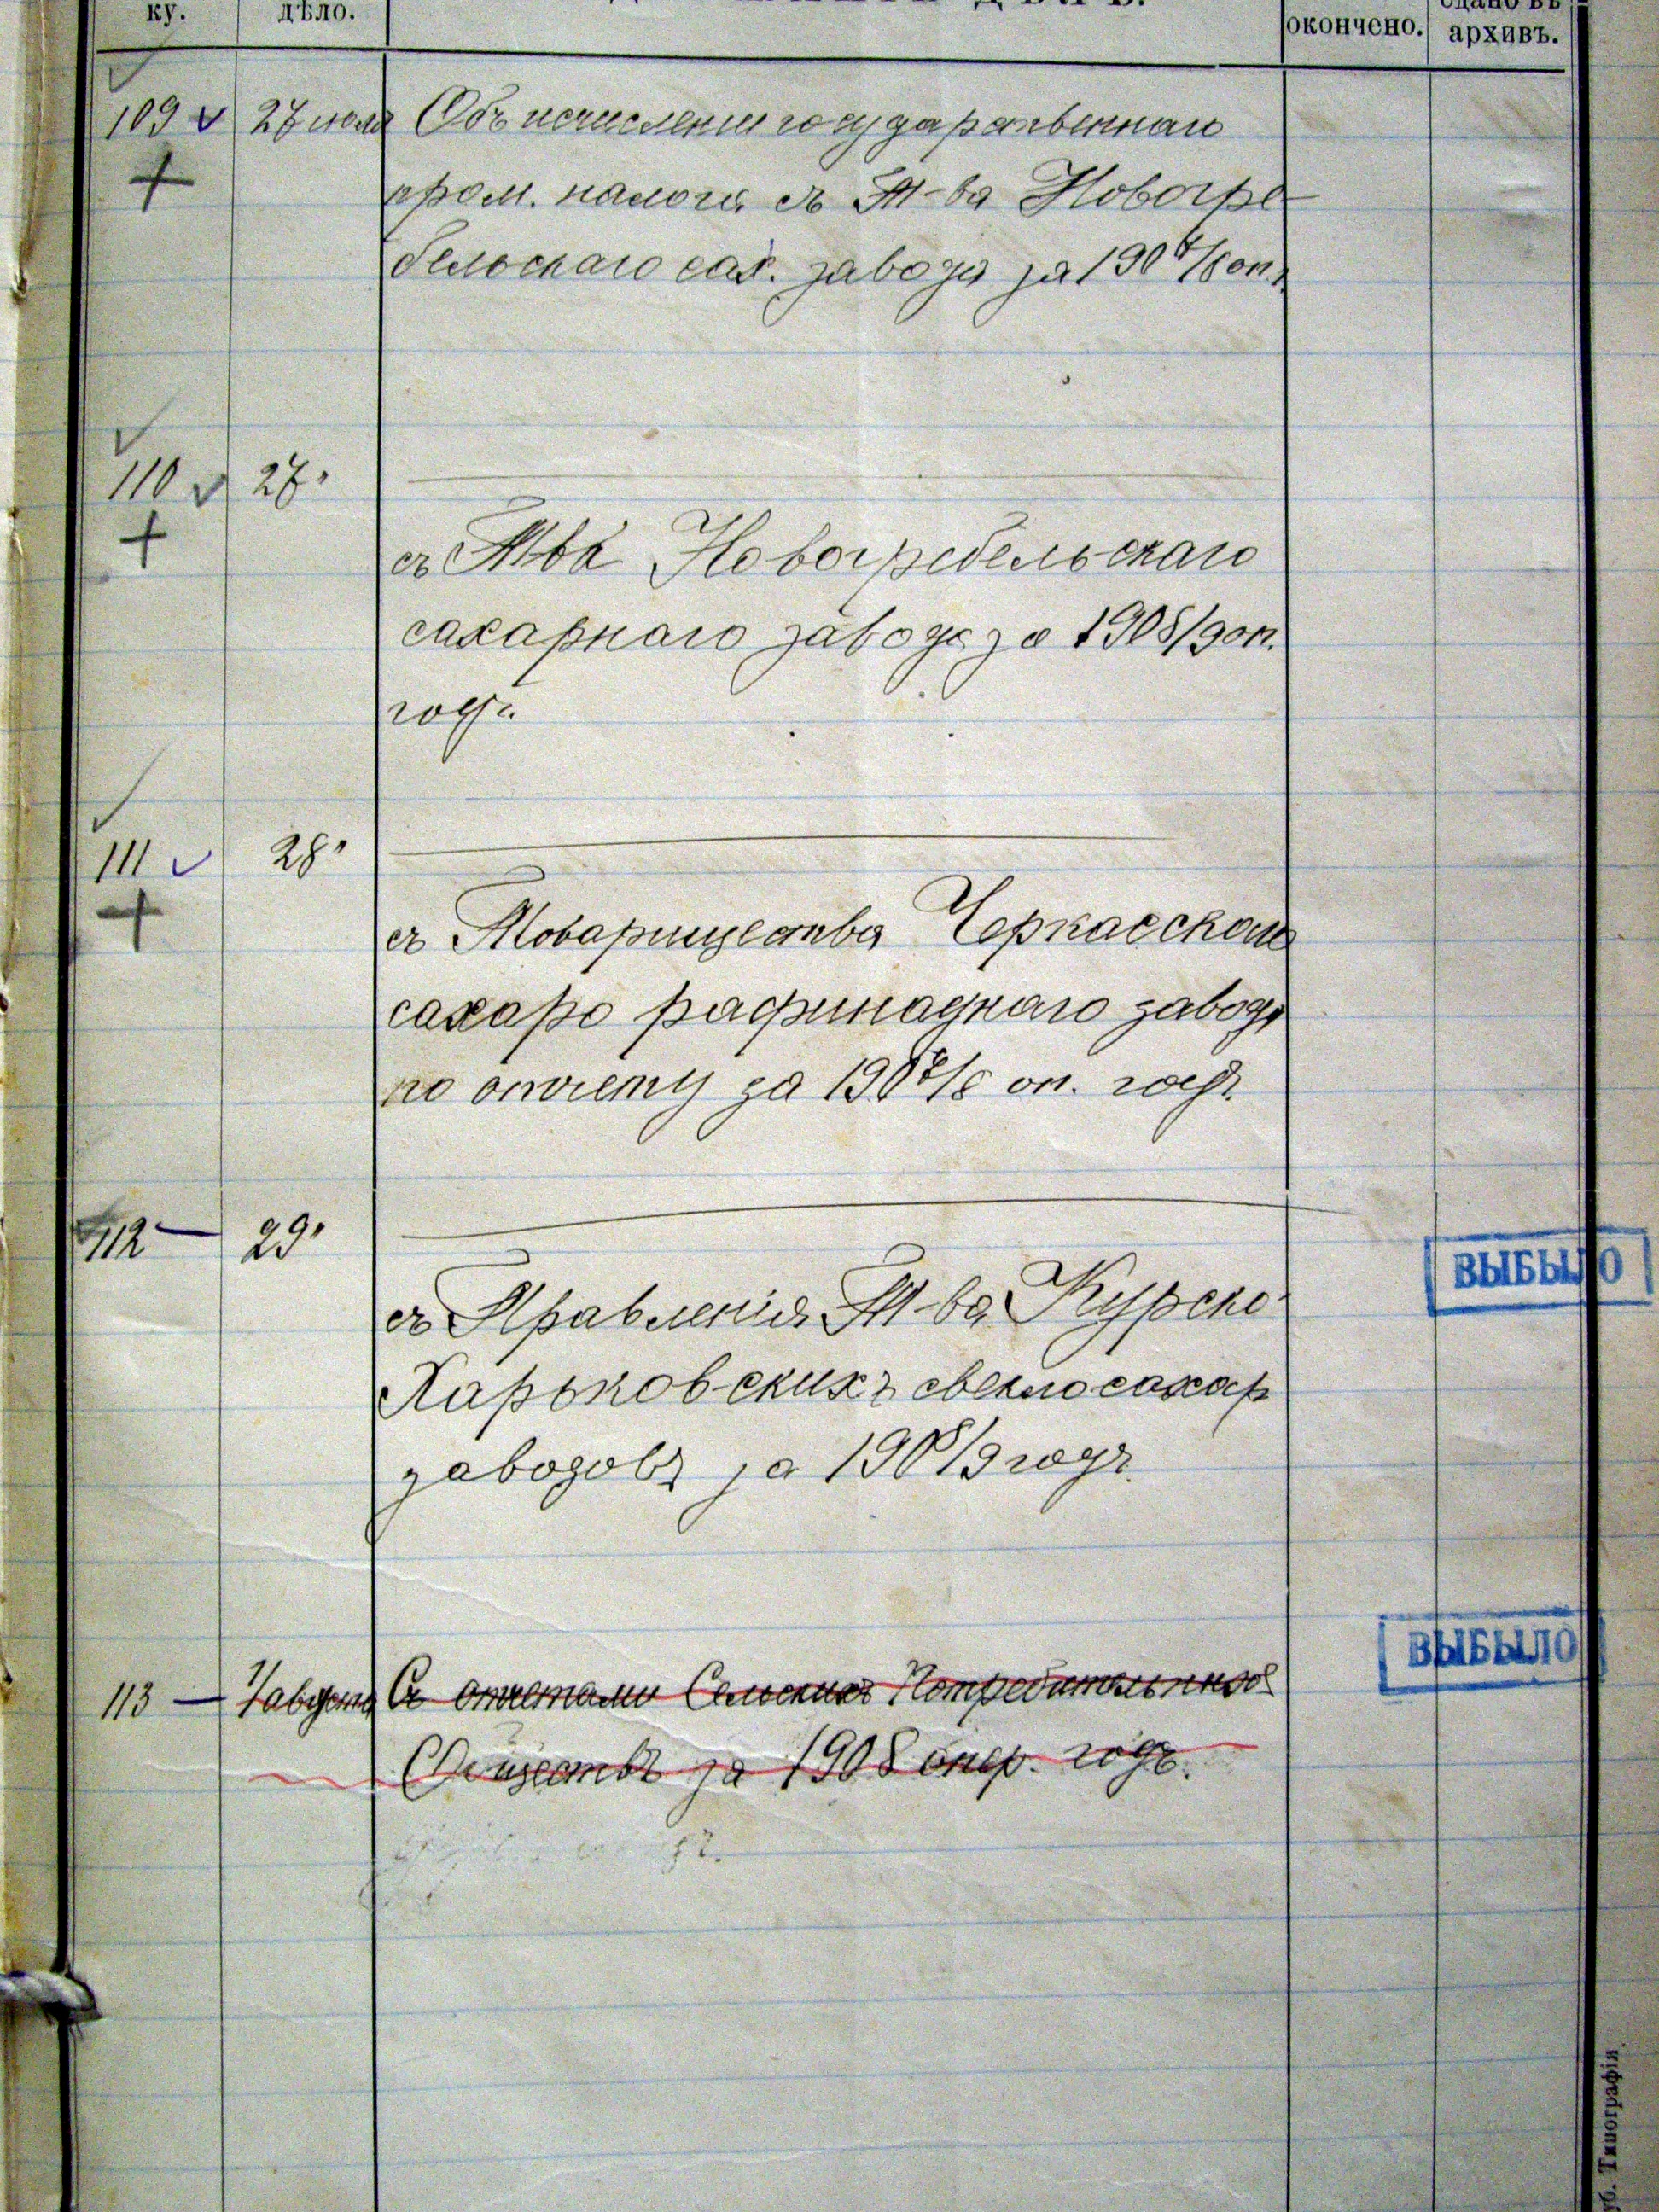 ку.
дѣло.
окончено.
сдано въ
архивъ.
109
27 июля
Объ исчисленіи государственнаго
пром. налога съ Т-ва Новогре-
бельскаго сах. завода за 1907/8 оп.
110
27"
съ Тва Новогребельскаго
сахарнаго завода за 1908/9 оп.
годъ.
111
28"
съ Товарищества Черкасскаго
сахаро рафинаднаго завода
по отчету за 1907/8 оп. годъ.
112
29"
съ Правленія Т-ва Курско-
Харьковскихъ свеклосахар
заводовъ за 1908/9 годъ.
ВЫБЫЛО
113
августа
Съ отчетами Сельскихъ Потребительныхъ
Обществъ за 1908 опер. годъ.
ВЫБЫЛО
уб. Типографія.